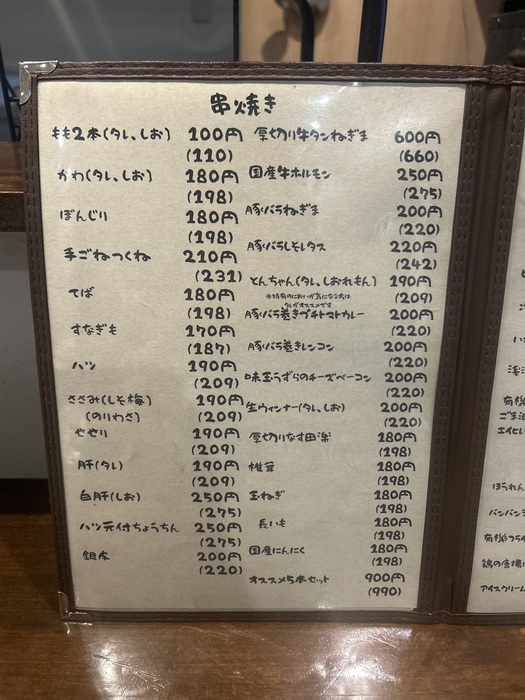 串焼き
もも2本(タレ、しお) 100円
(110)
かわ(タレ、しお) 180円
(198)
ぼんじり 180円
(198)
手ごねつくね 210円
(231)
てば 180円
(198)
すなぎも 170円
(187)
ハツ 190円
(209)
ささみ(しそ梅) 190円
(のりわさ) (209)
せせり 190円
(209)
肝(タレ) 190円
(209)
白肝(しお) 250円
(275)
ハツ元付ちょうちん 250円
(275)
銀皮 200円
(220)
厚切り牛タンねぎま 600円
(660)
国産牛ホルモン 250円
(275)
豚バラねぎま 200円
(220)
豚バラしそレタス 220円
(242)
とんちゃん(タレ、しおれもん) 190円
※特有のにおいが気になる方は (209)
タレがオススメです
豚バラ巻きプチトマトカレー 200円
(220)
豚バラ巻きレンコン 200円
(220)
味玉うずらのチーズベーコン 200円
(220)
生ウィンナー(タレ、しお) 200円
(220)
厚切りなす田楽 180円
(198)
椎茸 180円
(198)
玉ねぎ 180円
(198)
長いも 180円
(198)
国産にんにく 180円
(198)
オススメ5本セット 900円
(990)
有機
ごま油
エイヒレ
ほうれん
バンバンジ
有機フライ
鶏の唐揚
アイスクリーム